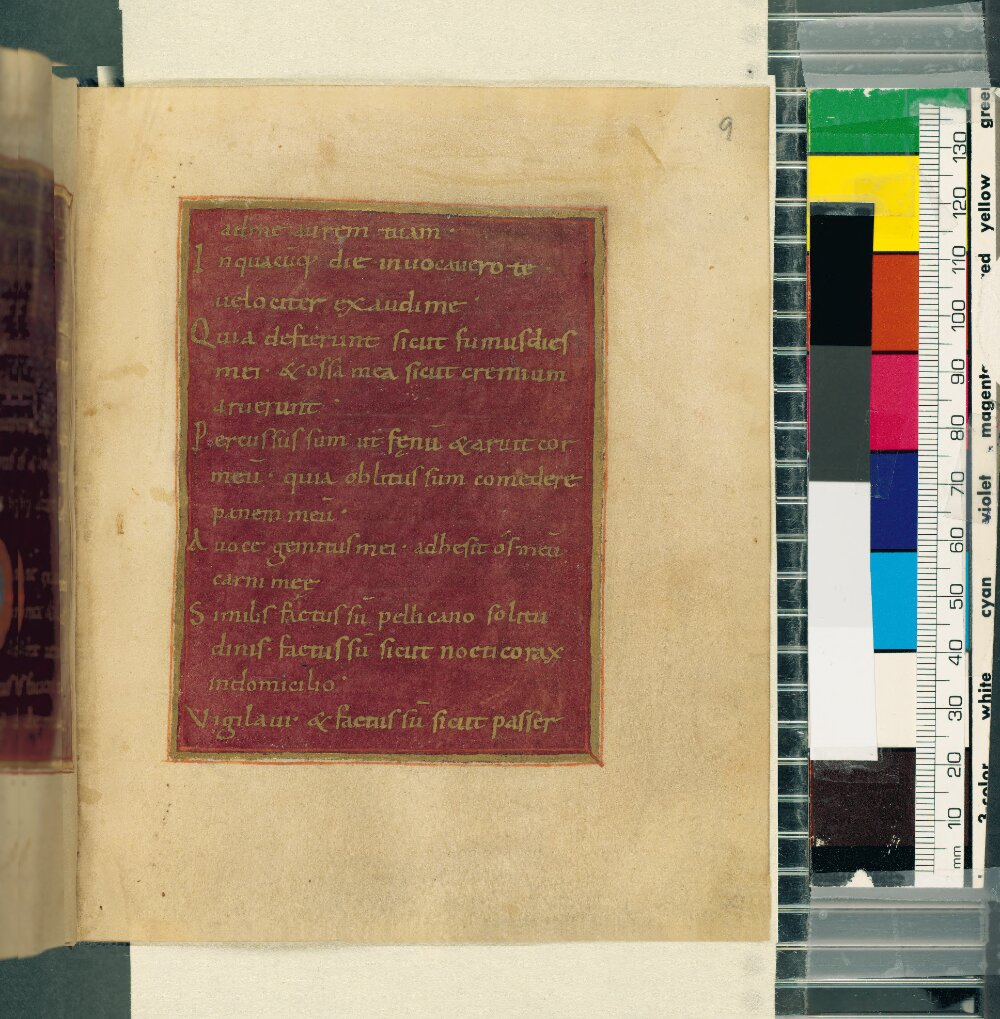 9
ad me aurem tuam·
In quacūq; die inuocauero te
uelociter exaudi me·
Quia defecerunt sicut fumus dies
mei· & ossa mea sicut cremium
aruerunt·
Percussus sum ut fęnū & aruit cor
meū· quia oblitus sum comedere
panem meū·
A uoce gemitus mei· adhesit os meū
carni meę
Similis factus sū pellicano solitu
dinis· factus sū sicut nocticorax
in domicilio·
Vigilaui & factus sū sicut passer
green
yellow
red
magenta
violet
cyan
white
3-color
130
120
110
100
90
80
70
60
50
40
30
20
10
mm